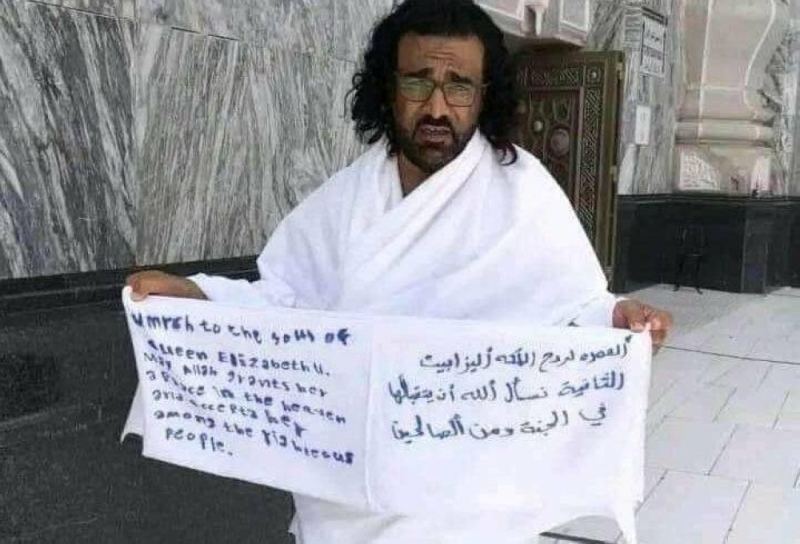 Umrah to the soul of
Queen Elizabeth II.
May Allah grants her
a Place in the heaven
and accepts her
among the righteous
people.
العمره لروح الملكه أليزابيت
الثانية نسأل الله أن يتقبلها
في الجنة ومن الصالحين